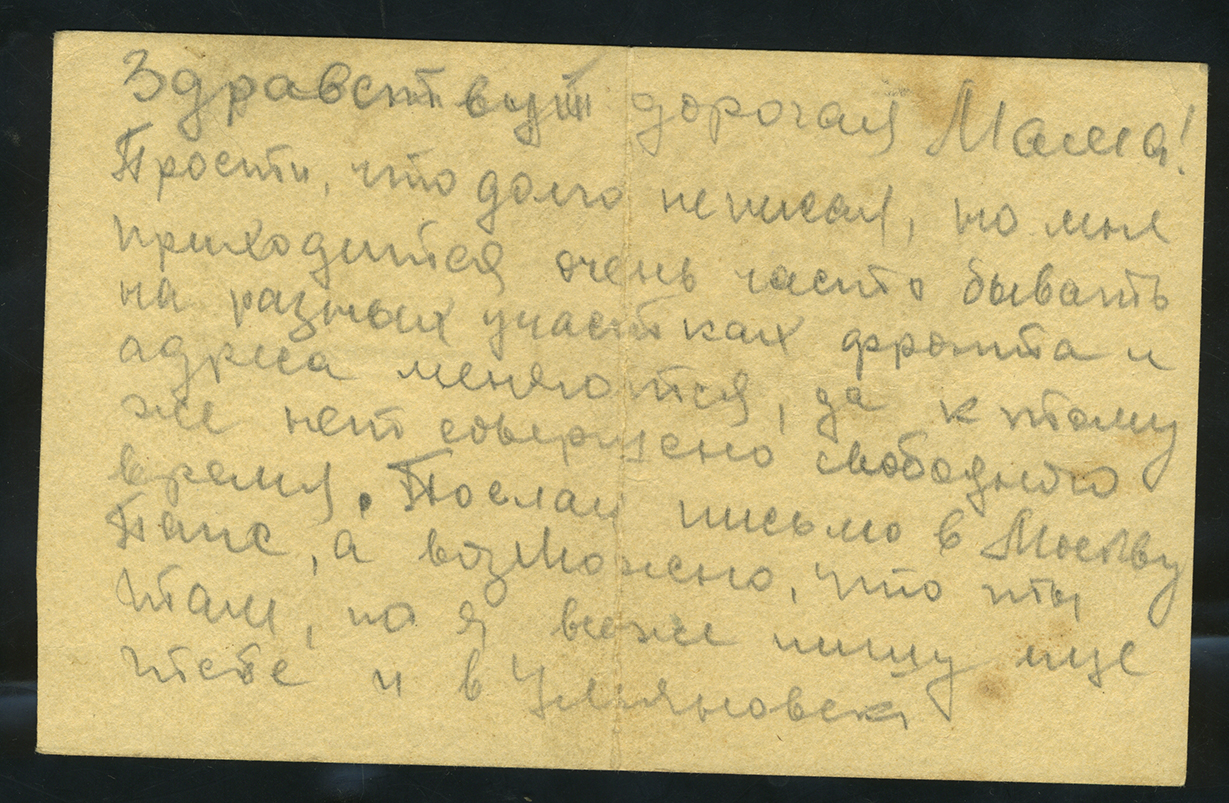 Здравствуй дорогая Мама!
Прости, что долго неписал, но мне
приходится очень часто бывать
на разных участках фронта и
адреса меняются, да к тому
же нет совершено свободного
время. Послал письмо в Москву
Папе, а возможно, что ты
там, но я всеже пишу еще
тебе и в Ульяновск.